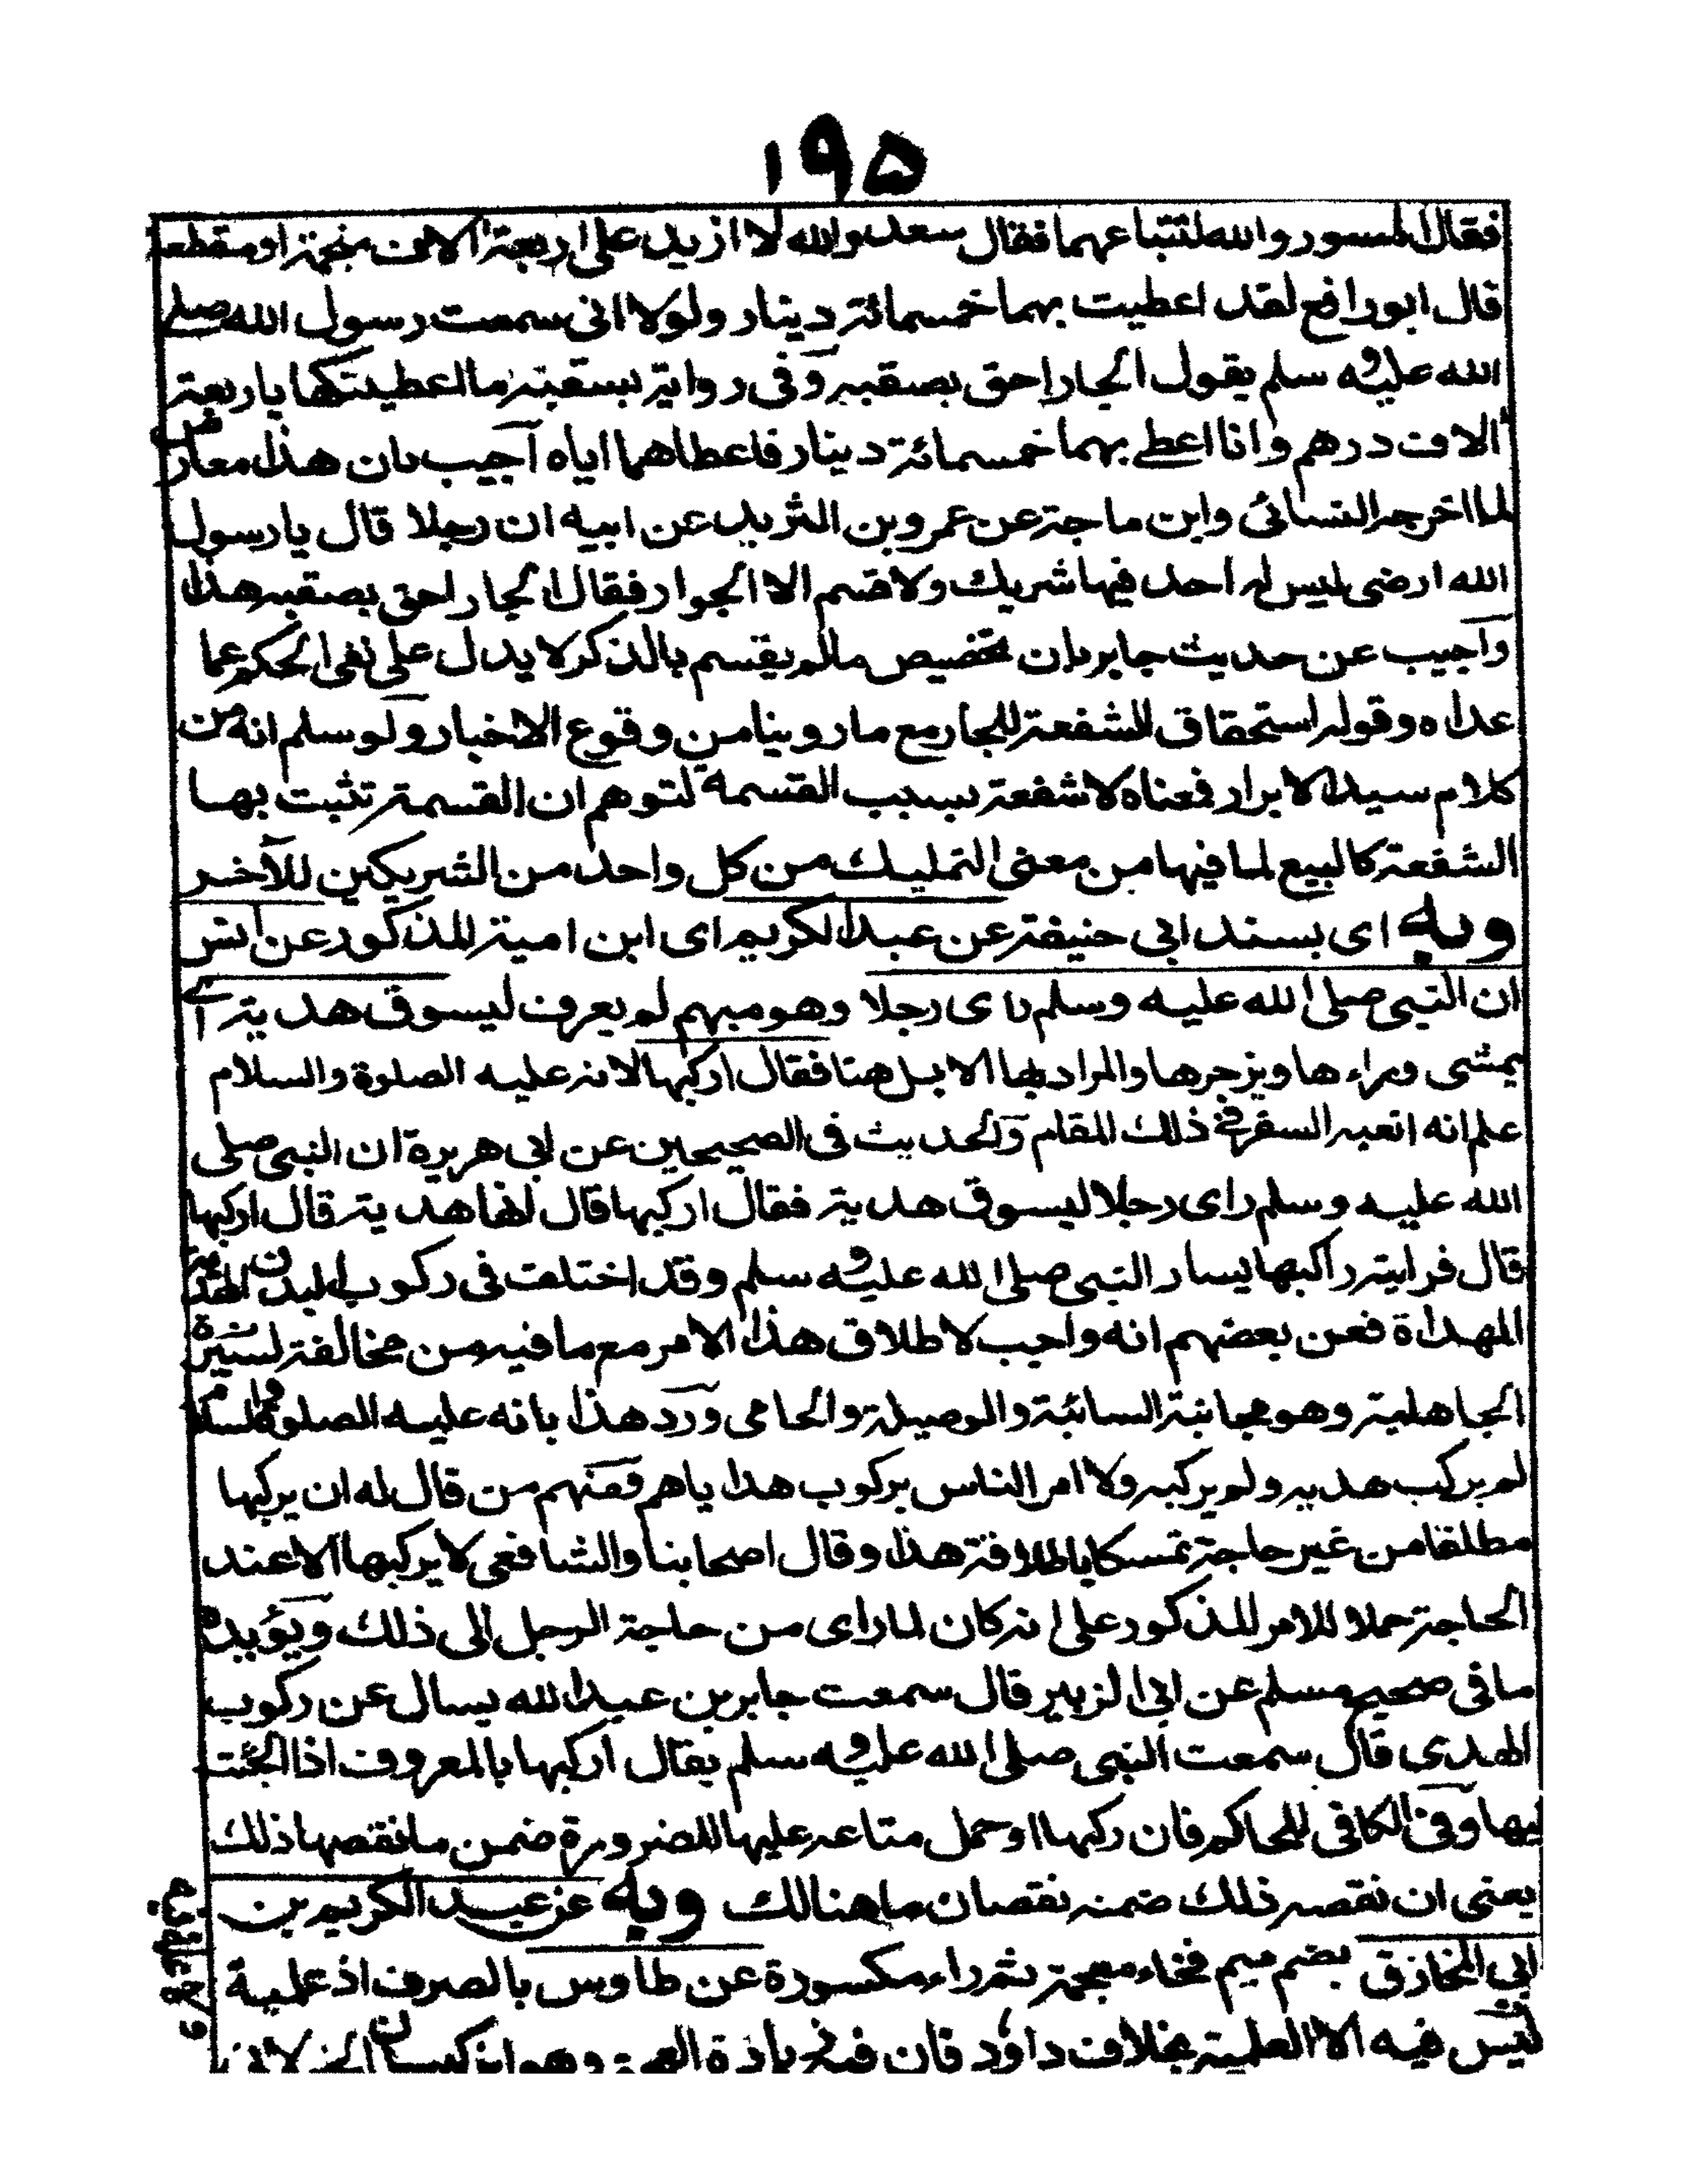 ١٩٥
فقال المسور والله لتبتاعهما فقال سعد والله لا ازيد على اربعة الاف منجمة او مقطعة
قال ابو رافع لقد اعطيت بهما خمسمائة دينار ولولا انى سمعت رسول الله صلى
الله عليه وسلم يقول الجار احق بصقبه وفى رواية بسقبه ما اعطيتكها باربعة
الاف درهم وانا اعطى بهما خمسمائة دينار فاعطاهما اياه اجيب بان هذا معارض
لما اخرجه النسائى وابن ماجة عن عمرو بن الثريد عن ابيه ان رجلا قال يا رسول
الله ارضى ليس له احد فيها شريك ولا قسم الا الجوار فقال الجار احق بصقبه هذا
واجيب عن حديث جابر بان تخصيص ما لم يقسم بالذكر لا يدل على نفى الحكم عما
عداه وقوله استحقاق الشفعة للجار مع ما روينا من وقوع الاخبار ولو سلم انه من
كلام سيد الابرار فمعناه لا شفعة بسبب القسمة لتوهم ان القسمة تثبت بها
الشفعة كالبيع لما فيها من معنى التمليك من كل واحد من الشريكين للآخر
وبه اى بسند ابى حنيفة عن عبد الكريم اى ابن امية المذكور عن انس
ان النبى صلى الله عليه وسلم راى رجلا وهو مبهم لم يعرف ليسوق هدية اى
يمشى وراءها ويزجرها والمراد بها الابل هنا فقال اركبها لانه عليه الصلوة والسلام
علم انه اتعبه السفر فى ذلك المقام والحديث فى الصحيحين عن ابى هريرة ان النبى صلى
الله عليه وسلم راى رجلا ليسوق هدية فقال اركبها قال انها هدية قال اركبها
قال فرايته راكبها يساير النبى صلى الله عليه وسلم وقد اختلف فى ركوب البدن الهدية
المهداة فعن بعضهم انه واجب لاطلاق هذا الامر مع ما فيه من مخالفة لسيرة
الجاهلية وهو مجانبة السائبة والوصيلة والحامى ورد هذا بانه عليه الصلوة والسلام
لم يركب هديه ولم يركبه ولا امر الناس بركوب هداياهم فمنهم من قال له ان يركبها
مطلقا من غير حاجة تمسكا باطلاقة هذا وقال اصحابنا والشافعى لا يركبها الا عند
الحاجة حملا للامر المذكور على انه كان لما راى من حاجة الرجل الى ذلك ويؤيده
ما فى صحيح مسلم عن ابى الزبير قال سمعت جابر بن عبد الله يسال عن ركوب
الهدى قال سمعت النبى صلى الله عليه وسلم يقال اركبها بالمعروف اذا الجئت
اليها وفى الكافى للحاكم فان ركبها او حمل متاعه عليها للضرورة ضمن ما نقصها ذلك
يعنى ان نقصه ذلك ضمنه نقصان ما هنالك وبه عن عبد الكريم بن
ابى المخازق بضم ميم فخاء معجمة ثم راء مكسورة عن طاوس بالصرف اذ علمية
ليس فيه الا العلمية بخلاف داؤد فان فيه زيادة العجمة وهو ابن كيسان